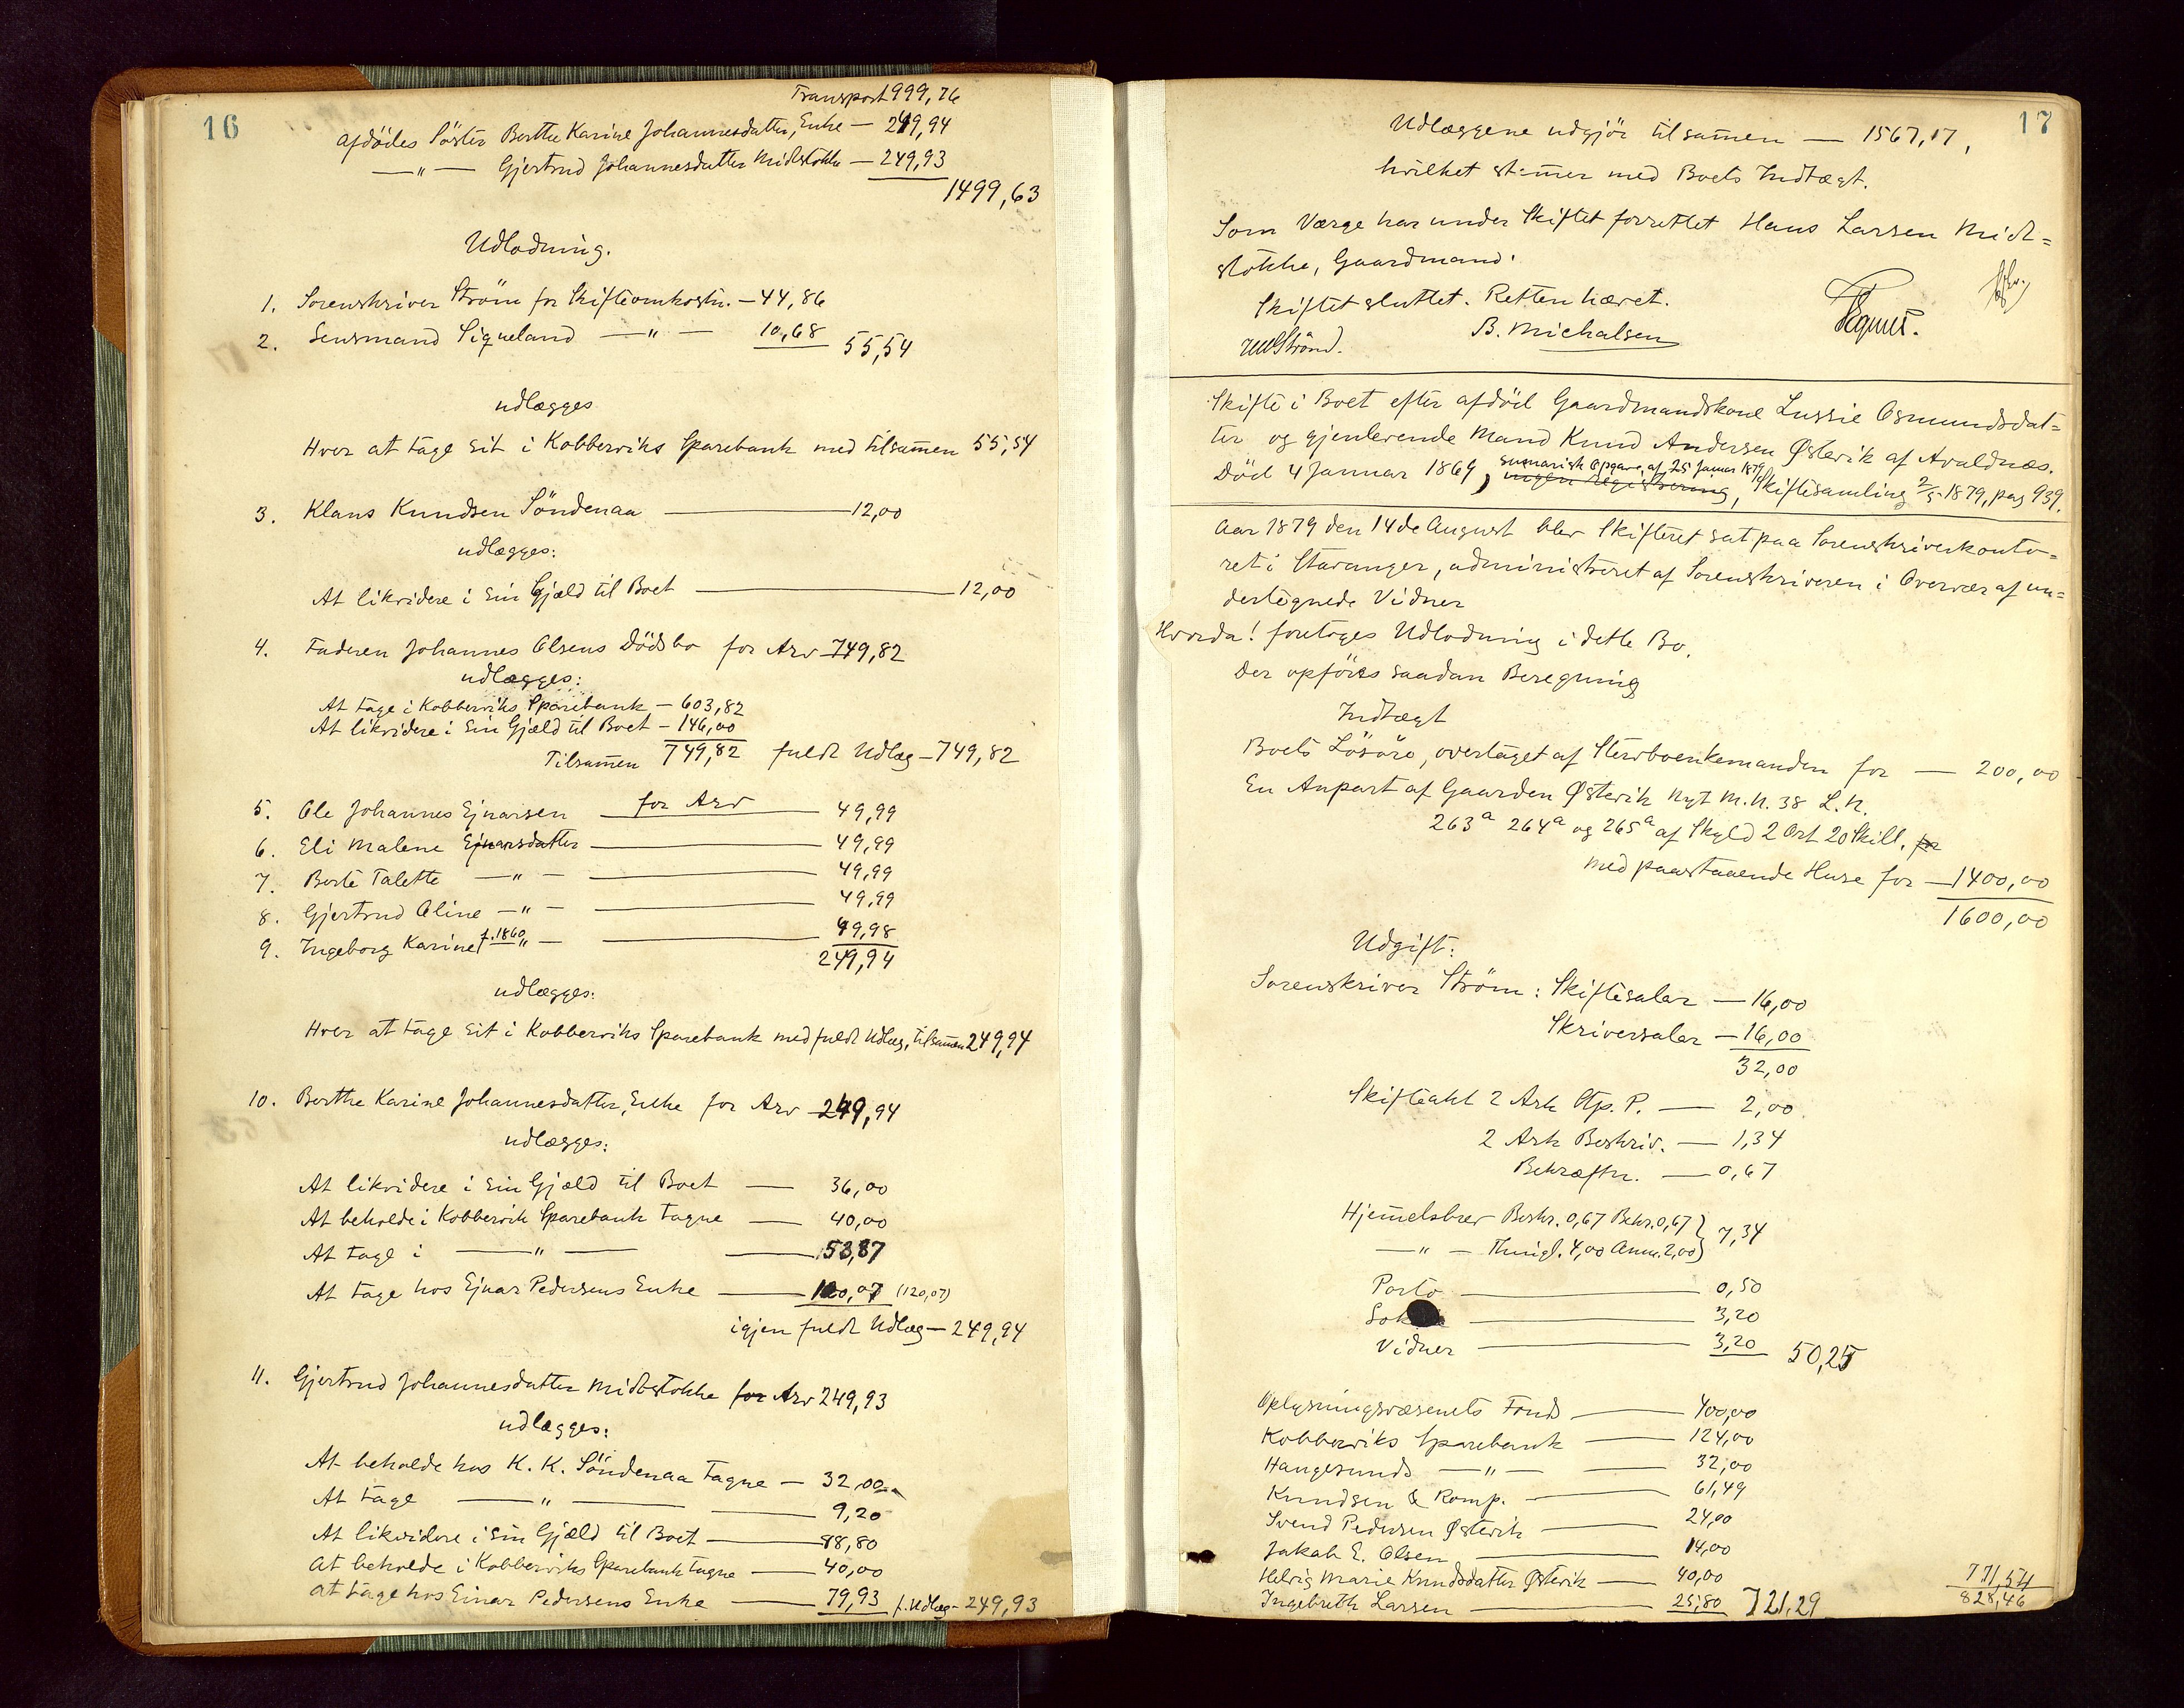 16
Transport 999,76
afdödes Söster Berthe Karine Johannesdatter, Enke — 249,94
— " — Gjertrud Johannesdatter Midtstokke — 249,93
1499,63
Udlodning.
1. Sorenskriver Ström for Skifteomkostn. — 44,86
2. Lensmand Siqveland — " — 10,68 55,54
udlægges
Hver at tage sit i Kobberviks Sparebank med tilsamen 55,54
3. Klaus Knudsen Söndenaa — 12,00
udlægges:
At likvidere i sin Gjæld til Boet — 12,00
4. Faderen Johannes Olsens Dödsbo for Arv — 749,82
udlægges:
At tage i Kobberviks Sparebank — 603,82
At likvidere i sin Gjæld til Boet — 146,00
Tilsamen 749,82 fuldt Udlæg — 749,82
5. Ole Johannes Ejnarsen for Arv 49,99
6. Eli Malene Ejnarsdatter — 49,99
7. Berte Talette — " — 49,99
8. Gjertrud Oline — " — 49,99
9. Ingeborg Karine f. 1860 " — 49,98
249,94
udlægges:
Hver at tage sit i Kobberviks Sparebank med fuldt Udlæg, tilsamen 249,94
10. Berthe Karine Johannesdatter, Enke for Arv 249,94
udlægges:
At likvidere i sin Gjæld til Boet — 36,00
At beholde i Kobbervik Sparebank tagne — 40,00
At tage i — " — 53,87
At tage hos Ejnar Pedersens Enke — 120,07 (120,07)
igjen fuldt Udlæg — 249,94
11. Gjertrud Johannesdatter Midtstokke for Arv 249,93
udlægges:
At beholde hos K. K. Söndenaa tagne — 32,00
At tage — " — 9,20
At likvidere i sin Gjæld til Boet — 88,80
At beholde i Kobberviks Sparebank tagne — 40,00
At tage hos Einar Pedersens Enke — 79,93 f. Udlæg — 249,93
17
Udlæggene udgjör tilsamen — 1567,17,
hvilket stemer med Boets Indtægt.
Som Værge har under Skiftet forrettet Hans Larsen Midt=
stokke, Gaardmand.
Skiftet sluttet. Retten hævet.
Ström. B. Michalsen
Skifte i Boet efter afdöd Gaardmandskone Lussie Osmundsdat=
ter og gjenlevende Mand Knud Andersen Østevik af Avaldnæs.
Död 4 Januar 1869, ingen registrering, sumarisk Opgave af 25 Januar 1879, Skiftesamling 2/5 1879, pag 939.
Aar 1879 den 14de August blev Skifteret sat paa Sorenskriverkonto=
ret i Stavanger, administreret af Sorenskriveren i Overvær af un=
dertegnede Vidner
Hvorda! foretoges Udlodning i dette Bo.
Der opföres saadan Beregning
Indtægt
Boets Lösöre, overtaget af Stervboenkemanden for — 200,00
En Anpart af Gaarden Østevik Nyt M.N. 38 L.N.
263a 264a og 265a af Skyld 2 Ort 20 Skill. for
med paastaaende Huse for — 1400,00
1600,00
Udgift:
Sorenskriver Ström: Skiftesalar — 16,00
Skriversalar — 16,00
32,00
Skifteakt 2 Ark Stp. P. — 2,00
2 Ark Beskriv. — 1,34
Bekræftn. — 0,67
Hjemelsbrev Beskr. 0,67 Bekr. 0,67 } 7,34
— " — Thingl. 4,00 Anm. 2,00
Porto — 0,50
3,20
Vidner — 3,20 50,25
Oplysningsvæsenets Fond — 400,00
Kobberviks Sparebank — 124,00
Haugesunds — " — 32,00
Knudsen & Komp. — 61,49
Svend Pedersen Østevik — 24,00
Jakob E. Olsen — 14,00
Helvig Marie Knudsdatter Østevik — 40,00
Ingebreth Larsen — 25,80 721,29
771,54
828,46